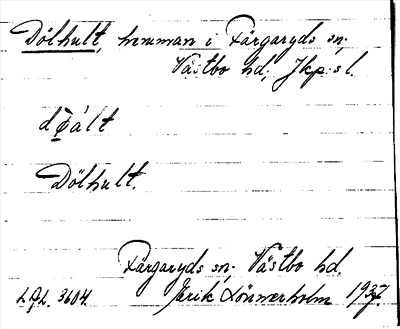 Dölhult, hemman i Färgaryds sn;
Västbo hd; Jkp:s l.
Dölhult.
Färgaryds sn; Västbo hd.
Jarik Lönnerholm 1937.